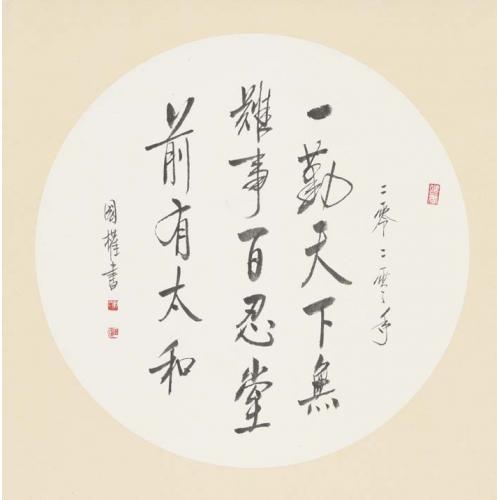 二零二零年
一勤天下無
難事百忍堂
前有太和
國權書